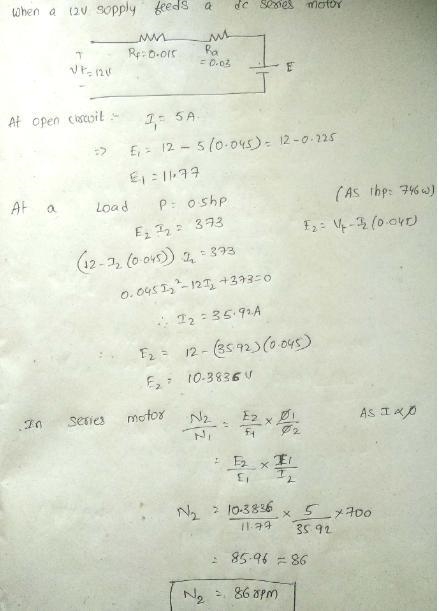 When a 12V sopply feeds a dc series motor
Rf=0.015 Ra
=0.03 E
Vt=12V
At open circuit :- I1 = 5A.
=> E1 = 12 - 5(0.045) = 12-0.225
E1 = 11.77
At a Load P= 0.5hp (As 1hp= 746w)
E2 I2 = 373 E2= Vt-I2(0.045)
(12-I2(0.045)) I2 = 373
0.045 I2²-12I2+373=0
∴ I2 = 35.92A
∴ E2 = 12-(35.92)(0.045)
E2 = 10.3836 V
In series motor N2/N1 = E2/E1 × Ø1/Ø2 As I ∝ Ø
= E2/E1 × I1/I2
N2 = 10.3836/11.77 × 5/35.92 ×700
= 85.96 = 86
N2 = 86 rpm